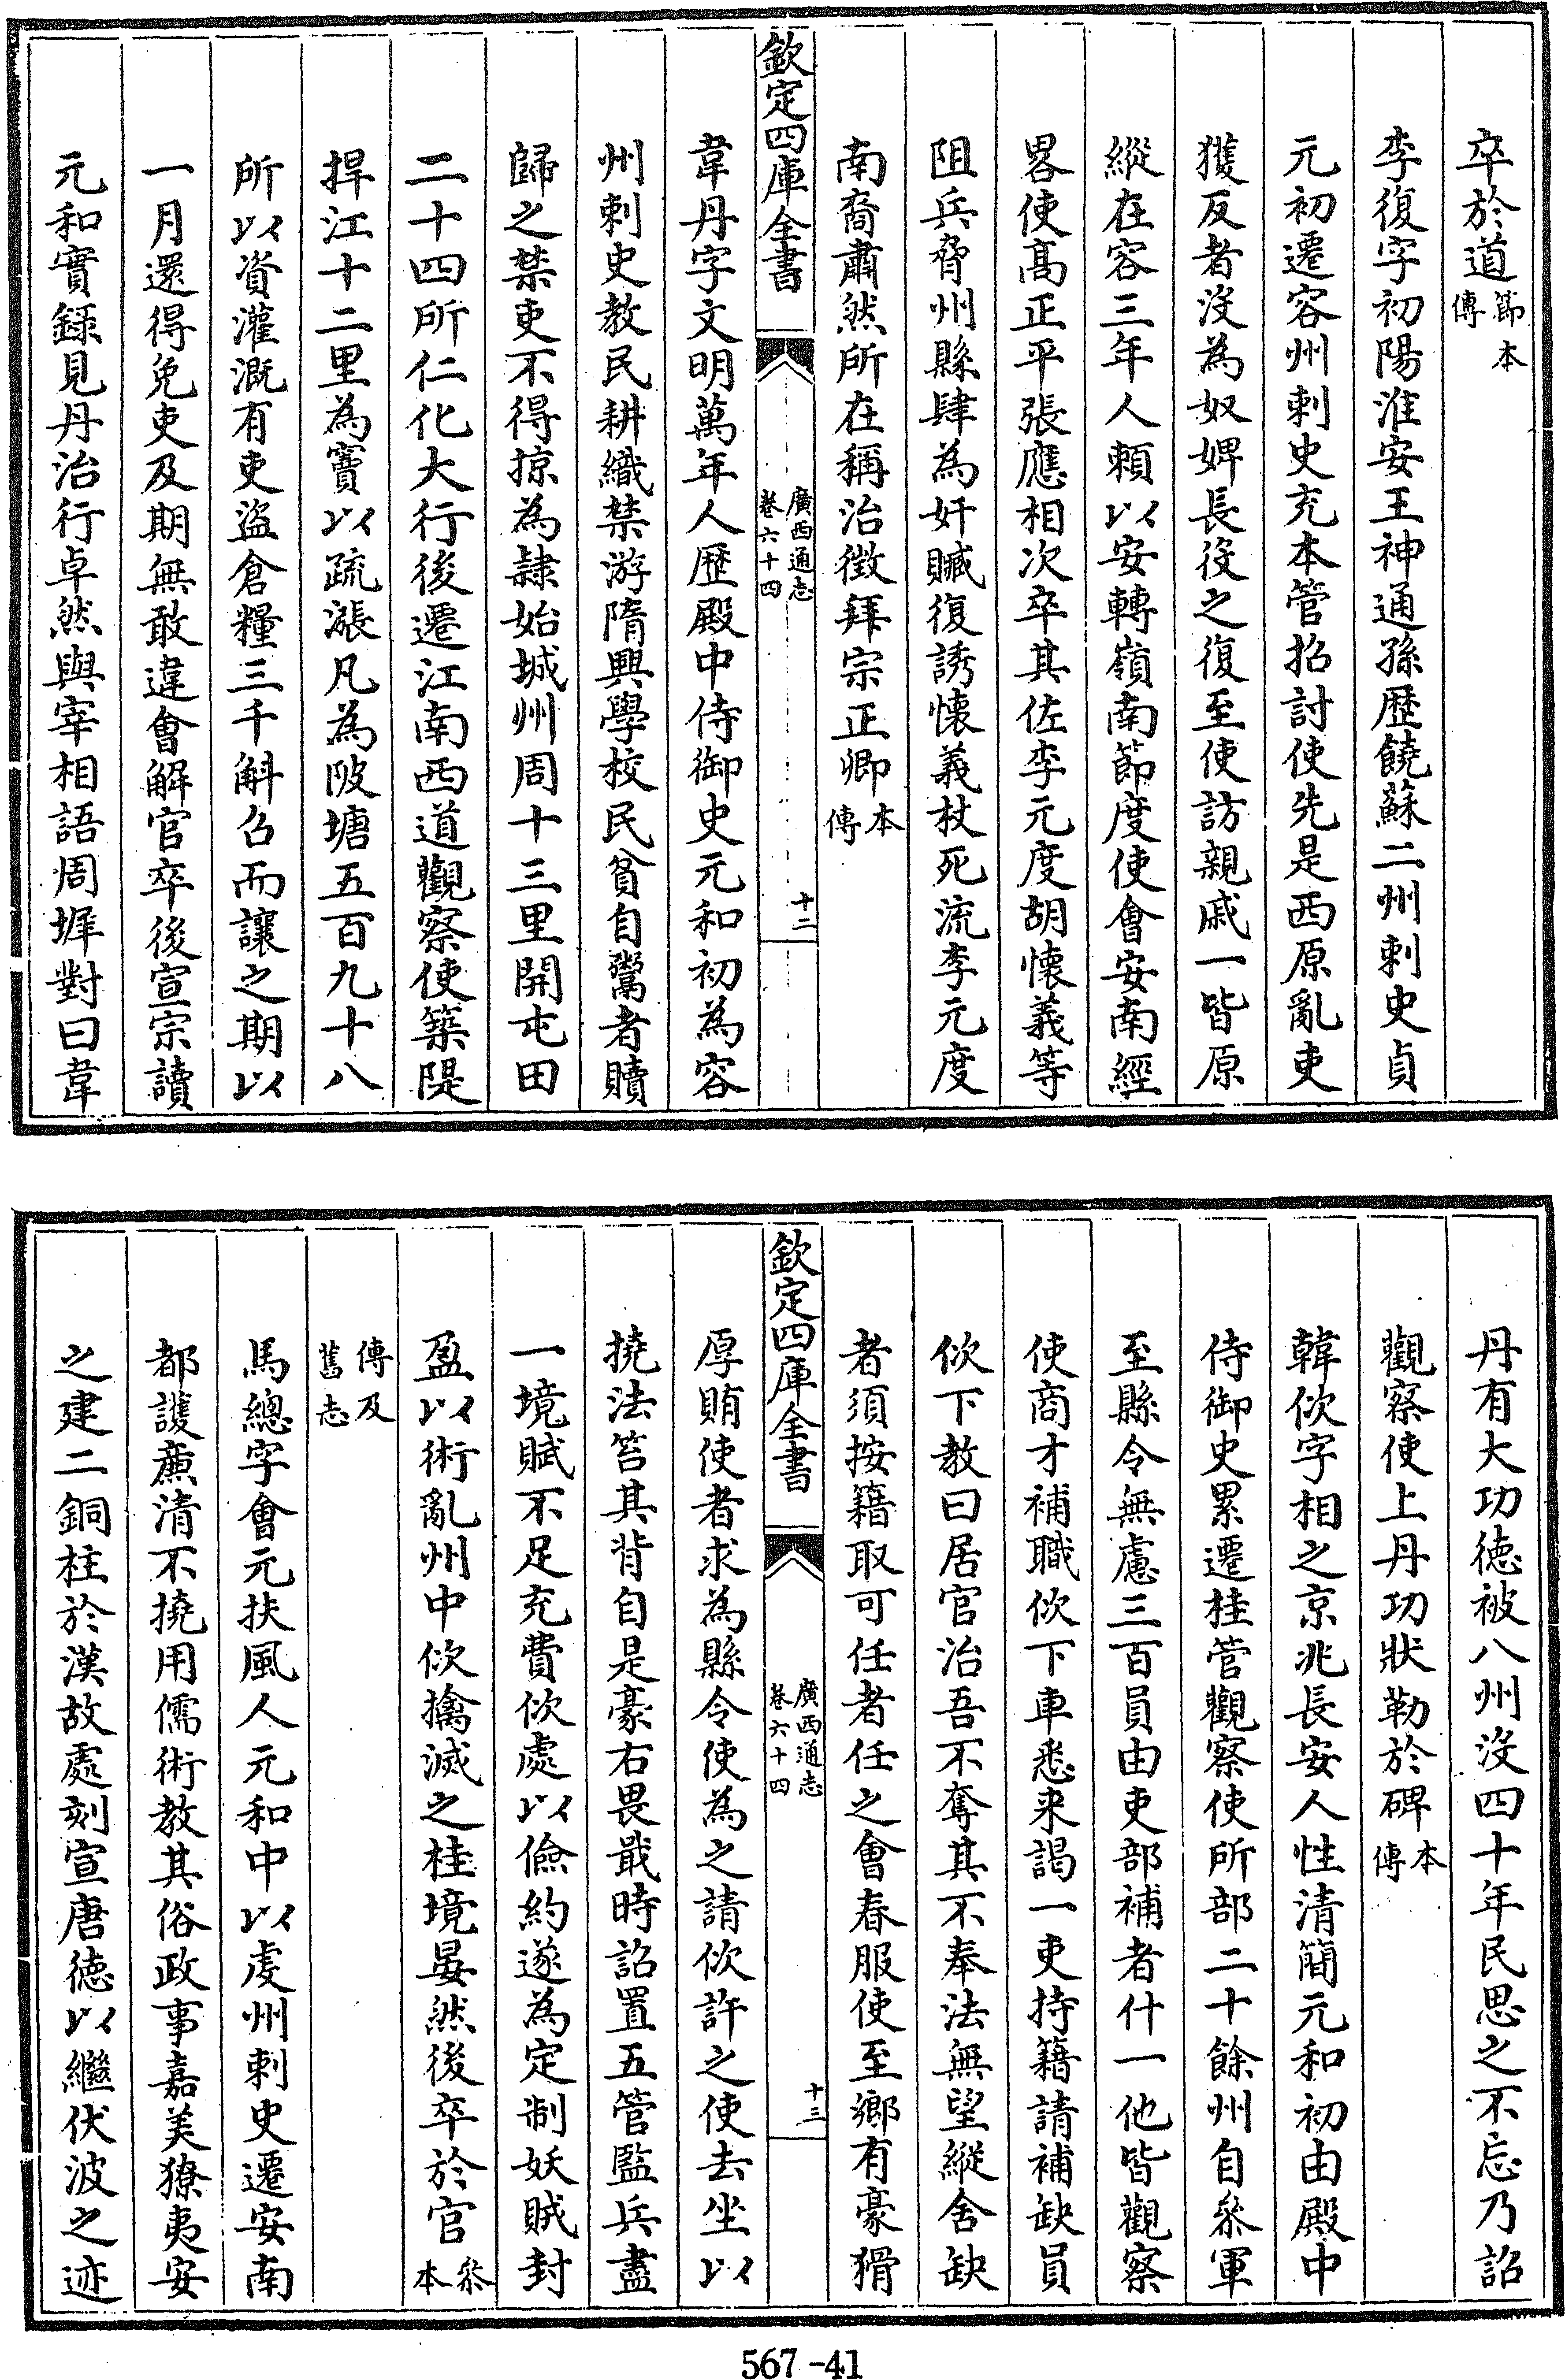 卒於道節本
傳
李復字初陽淮安王神通孫歴饒蘇二州刺史貞
元初遷容州刺史充本管招討使先是西原亂吏
獲反者沒為奴婢長役之復至使訪親戚一皆原
縱在容三年人賴以安轉嶺南節度使會安南經
畧使髙正平張應相次卒其佐李元度胡懐義等
阻兵脅州縣肆為奸贓復誘懐義杖死流李元度
南裔肅然所在稱治徴拜宗正卿本
傳
欽定四庫全書
廣西通志
卷六十四
十二
韋丹字文明萬年人歴殿中侍御史元和初為容
州刺史教民耕織禁游隋興學校民貧自鬻者贖
歸之禁吏不得掠為隷始城州周十三里開屯田
二十四所仁化大行後遷江南西道觀察使築隄
捍江十二里為竇以疏漲凡為陂塘五百九十八
所以資灌溉有吏盜倉糧三千斛召而讓之期以
一月還得免吏及期無敢違會解官卒後宣宗讀
元和實録見丹治行卓然與宰相語周墀對曰韋
丹有大功徳被八州沒四十年民思之不忘乃詔
觀察使上丹功狀勒於碑本
傳
韓佽字相之京兆長安人性清簡元和初由殿中
侍御史累遷桂管觀察使所部二十餘州自叅軍
至縣令無慮三百員由吏部補者什一他皆觀察
使商才補職佽下車悉来謁一吏持籍請補缺員
佽下教曰居官治吾不奪其不奉法無望縱舍缺
者須按籍取可任者任之會春服使至鄉有豪猾
欽定四庫全書
廣西通志
卷六十四
十三
厚賄使者求為縣令使為之請佽許之使去坐以
撓法笞其背自是豪右畏戢時詔置五管監兵盡
一境賦不足充費佽處以儉約遂為定制妖賊封
盈以術亂州中佽擒滅之桂境晏然後卒於官叅
本
傳及
舊志
馬總字會元扶風人元和中以虔州刺史遷安南
都護亷清不撓用儒術教其俗政事嘉美獠夷安
之建二銅柱於漢故處刻宣唐徳以繼伏波之迹
567-41